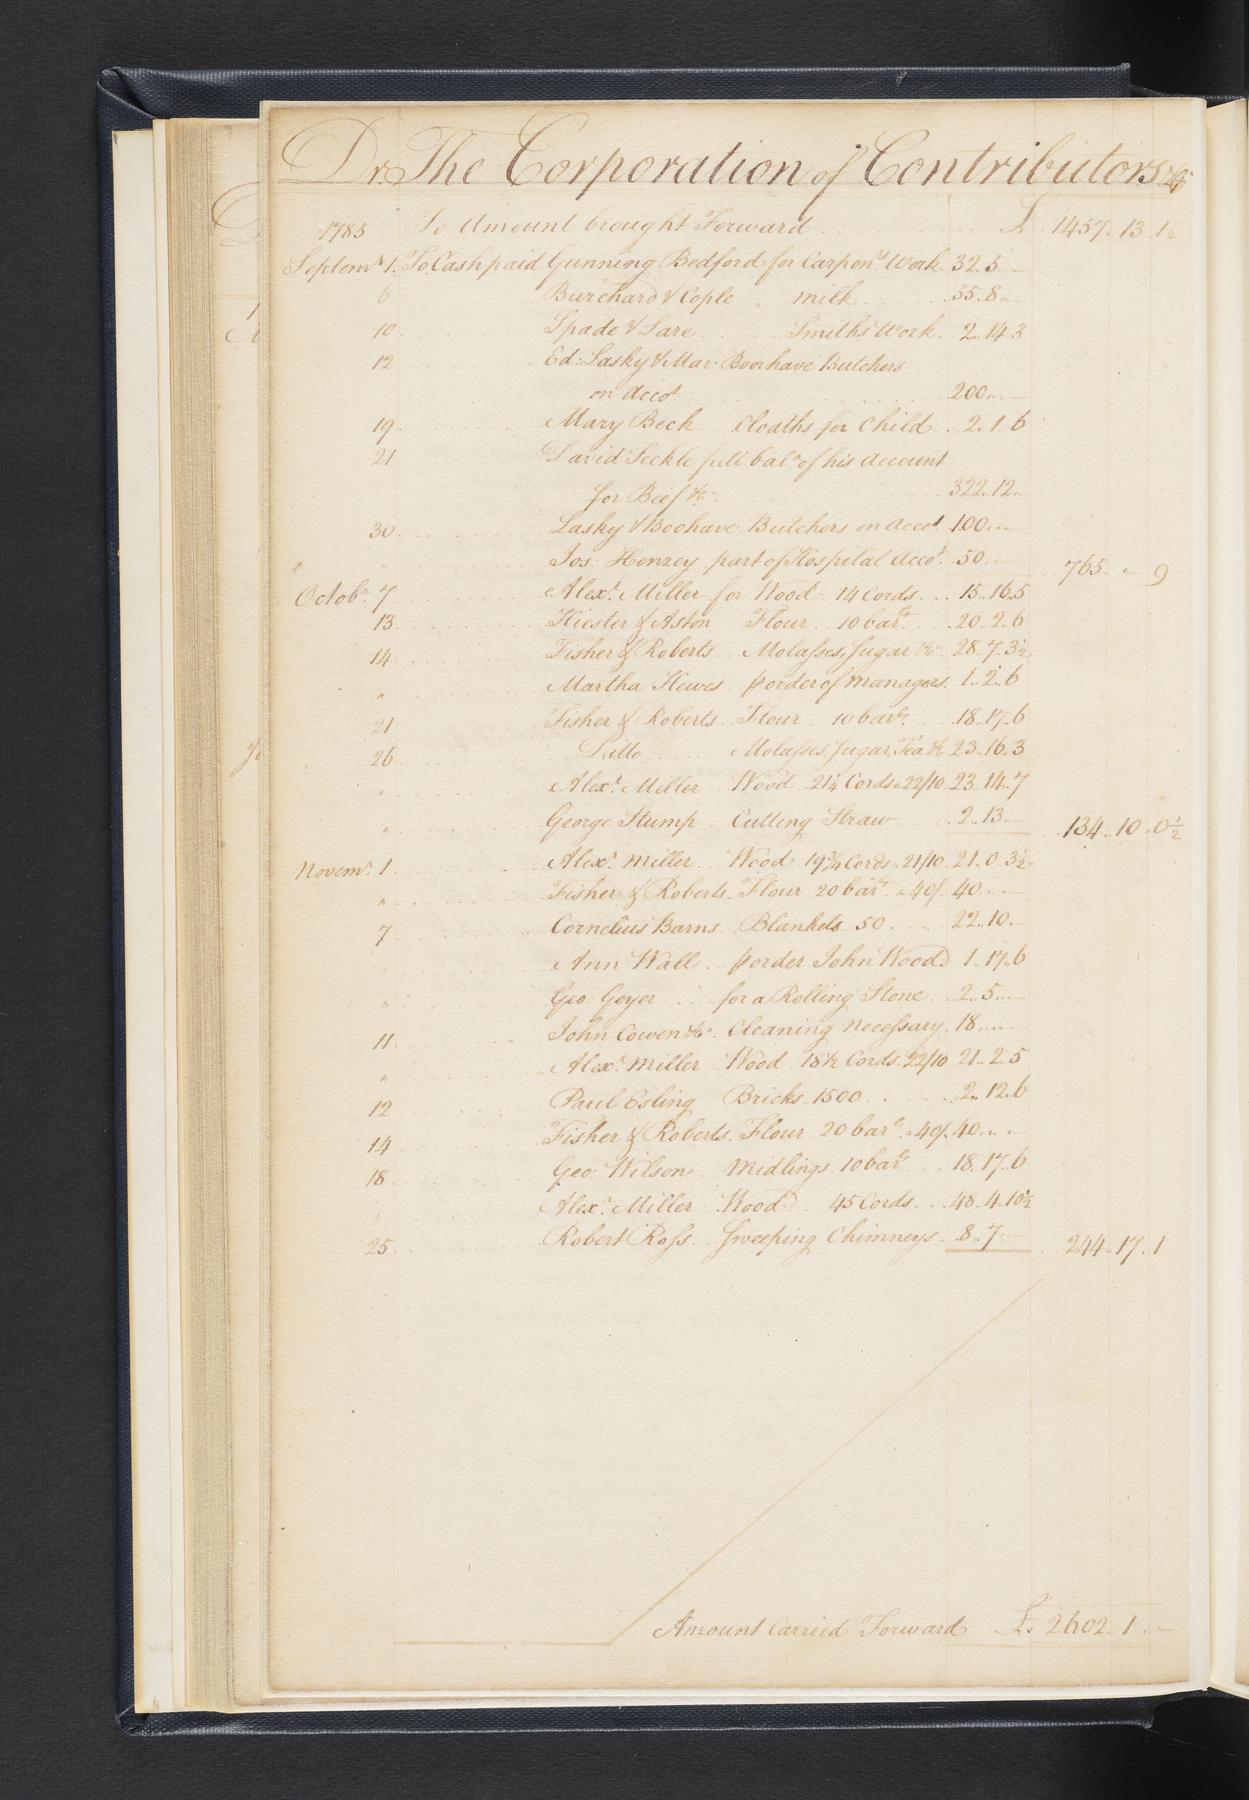 Dr. The Corporation of Contributors &c
1785 To Amount brought Forward £ 1457. 13. 1½
Septemr. 1. To Cash paid Gunning Bedford for Carpenrs. Work 32. 5. —
6 Burchard & Cople milk 55. 8. —
10 Spade & Lare Smiths Work 2. 14. 3
12 Ed: Lasky & Mar: Boorhave Butchers
on Accot. 200. . —
19 Mary Beck Cloaths for Child 2. 1. 6
21 David Seckle full bale. of his Account
for Beef &c. 322. 12. —
30 Lasky & Boohave Butchers on Accot. 100. . —
" Jos: Henzey part of Hospital Accot. 50 — 765. " 9
Octobr. 7 Alexr. Miller for Wood 14 Cords 15. 16. 5
13 Hiester & Aston Flour 10 barls. 20. 2. 6
14 Fisher & Roberts Molasses, Sugar &c. 28. 7. 3½
" Martha Hewes p order of Managers 1. 2. 6
21 Fisher & Roberts Flour 10 barls. 18. 17. 6
26 Ditto Molasses, Sugar, Tea &c 23. 16. 3
" Alexr. Miller Wood 21¼ Cords a 22/10 23. 14. 7
" George Stump Cutting Straw 2. 13. — 134. 10. 0½
Novemr. 1 Alexr. Miller Wood 19¾ Cords 21/10 21. 0. 3½
" Fisher & Roberts Flour 20 barls. a 40/ 40. . —
7 Cornelius Barns Blankets 50 22. 10. —
" Ann Wall p order John Wood 1. 17. 6
" Geo: Geyer for a Rolling Stone 2. 5. —
11 John Cowen &c. Cleaning necessary 18. . —
" Alexr. Miller Wood 18½ Cords 22/10 21. 2. 5
12 Paul Esling Bricks 1500 2. 12. 6
14 Fisher & Roberts Flour 20 barls. a 40/ 40. . —
18 Geo: Wilson Midlings 10 barls. 18. 17. 6
" Alexr. Miller Wood 45 Cords 48. 4. 10½
25 Robert Ross Sweeping Chimneys 8. 7. — 244. 17. 1
Amount Carried Forward £. 2602. 1. —